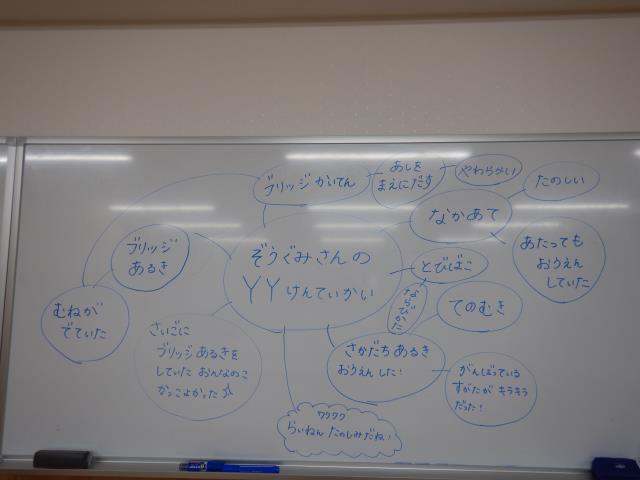 ブリッジかいてん
あしを
まえにだす
やわらかい
なかあて
たのしい
あたっても
おうえん
していた
ぞうぐみさんの
YYけんていかい
とびばこ
ならびかた
てのむき
ブリッジ
あるき
むねが
でていた
さいごに
ブリッジあるきを
していたおんなのこ
かっこよかった
さかだちあるき
おうえんした!
がんばっている
すがたがキラキラ
だった!
ワクワク
らいねんたのしみだね!